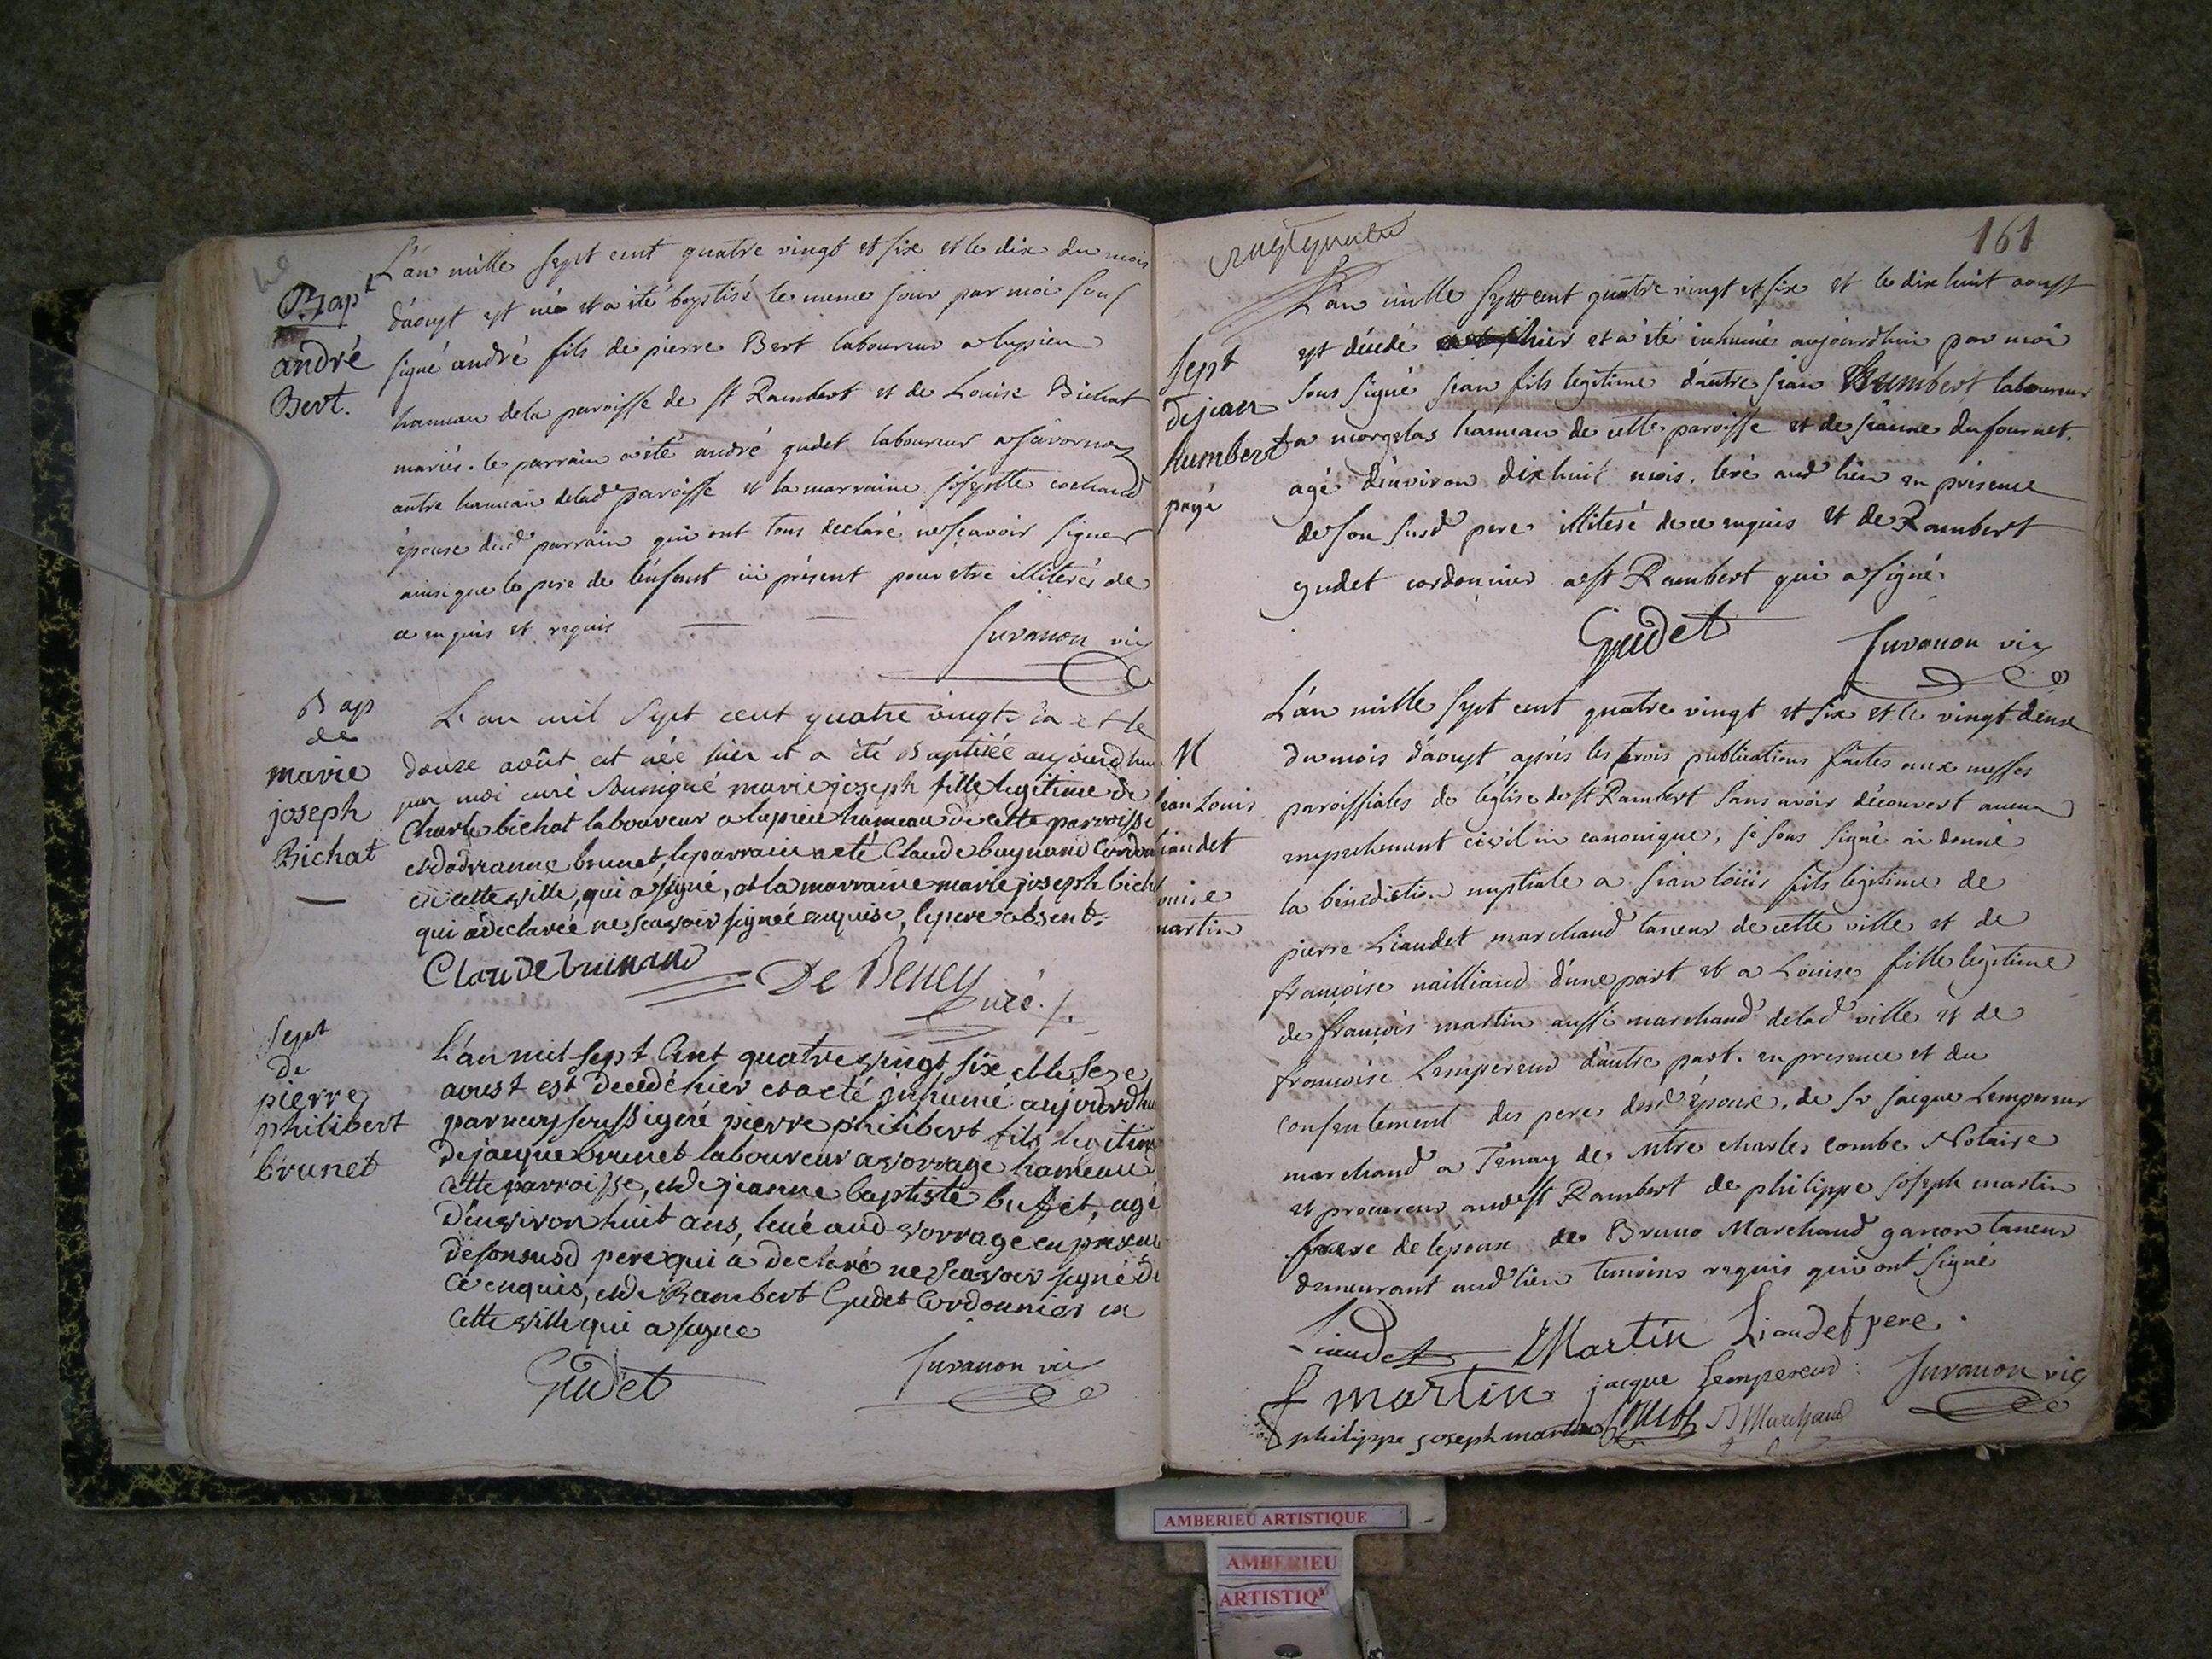 Bapt
andré
Bert.
L'an mille sept cent quatre vingt et six et le dix du mois
d'aoust est né et a été baptisé le meme jour par moi sous
signé andré fils de pierre Bert laboureur a lupieu
hameau de la paroisse de st Rambert et de Louise Bichat
mariés. le parrain a été andré gudet laboureur a
autre hameau de lad paroisse et la marraine josephte cochand
épouse dud parrain qui ont tous declaré ne sçavoir signer
ainsi que le pere de l'enfant ici présent pour etre illiterés de
ce enquis et requis
Juvanon vic
Bap
de
marie
joseph
Bichat
L'an mil sept cent quatre vingt six et le
douze août est née hier et a été Baptisée aujourdhui
par moi curé soussigné marie joseph fille legitime de
Charle bichat laboureur a lupieu hameau de cette parroisse
et dadrianne brunet, le parrain a eté Claude
en cette ville, qui a signé, et la marraine marie joseph bich
qui a declarée ne scavoir signée enquise, le pere absent.
Claude
De Beney
curé
Sept
de
pierre
philibert
brunet
L'an mil sept Cent quatre vingt six et le seze
aoust est decedé hier et a eté inhumé aujourdhui
par moy soussigné pierre philibert fils legitime
de jacque brunet laboureur a vorrage hameau
cette parroisse, et de jeanne baptiste buffet, agé
d'environ huit ans, levé aud vorrage en presence
de son susd pere qui a declaré ne scavoir signé de
ce enquis, et de Rambert Gudet Cordonnier en
cette ville qui a signe
Gudet Juvanon vic
161
Sept
de jean
humbert
payé
L'an mille sept cent quatre vingt et six et le dix huit aoust
est décédé hier et a été inhumé aujourdhui par moi
sous signé jean fils legitime d'autre jean Humbert laboureur
a morgelas hameau de cette paroisse et de jeanne dufournet.
agé d'environ dix huit mois. levé aud lieu en présence
de son susd pere illiteré de ce enquis et de Rambert
gudet cordonnier a st Rambert qui a signé.
Gudet Juvanon vic
M
jean Louis
liaudet
louise
martin
L'an mille sept cent quatre vingt et six et le vingt deux
du mois d'aoust après les trois publications faites aux messes
paroissiales de l'église de st Rambert sans avoir découvert aucun
empechement civil ni canonique, je sous signé ai donné
la bénédiction nuptiale a jean loüis fils legitime de
pierre Liaudet marchand taneur de cette ville et de
françoise nailliand d'une part et a Louise fille legitime
de françois martin aussi marchand de lad ville et de
françoise Lempereur d'autre part. en presence et du
consentement des peres desd époux, de sr jacque Lempereur
marchand a Tenay de Mtre charles combe Notaire
et procureur aud st Rambert de philippe joseph martin
frere de lepouse de Bruno Marchand garcon taneur
demeurant aud lieu temoins requis qui ont signé
Liaudet Martin Liaudet pere.
f martin jacque Lempereur Juvanon vic
philippe joseph martin Combe B Marchand
AMBERIEU ARTISTIQUE
AMBERIEU
ARTISTIQ